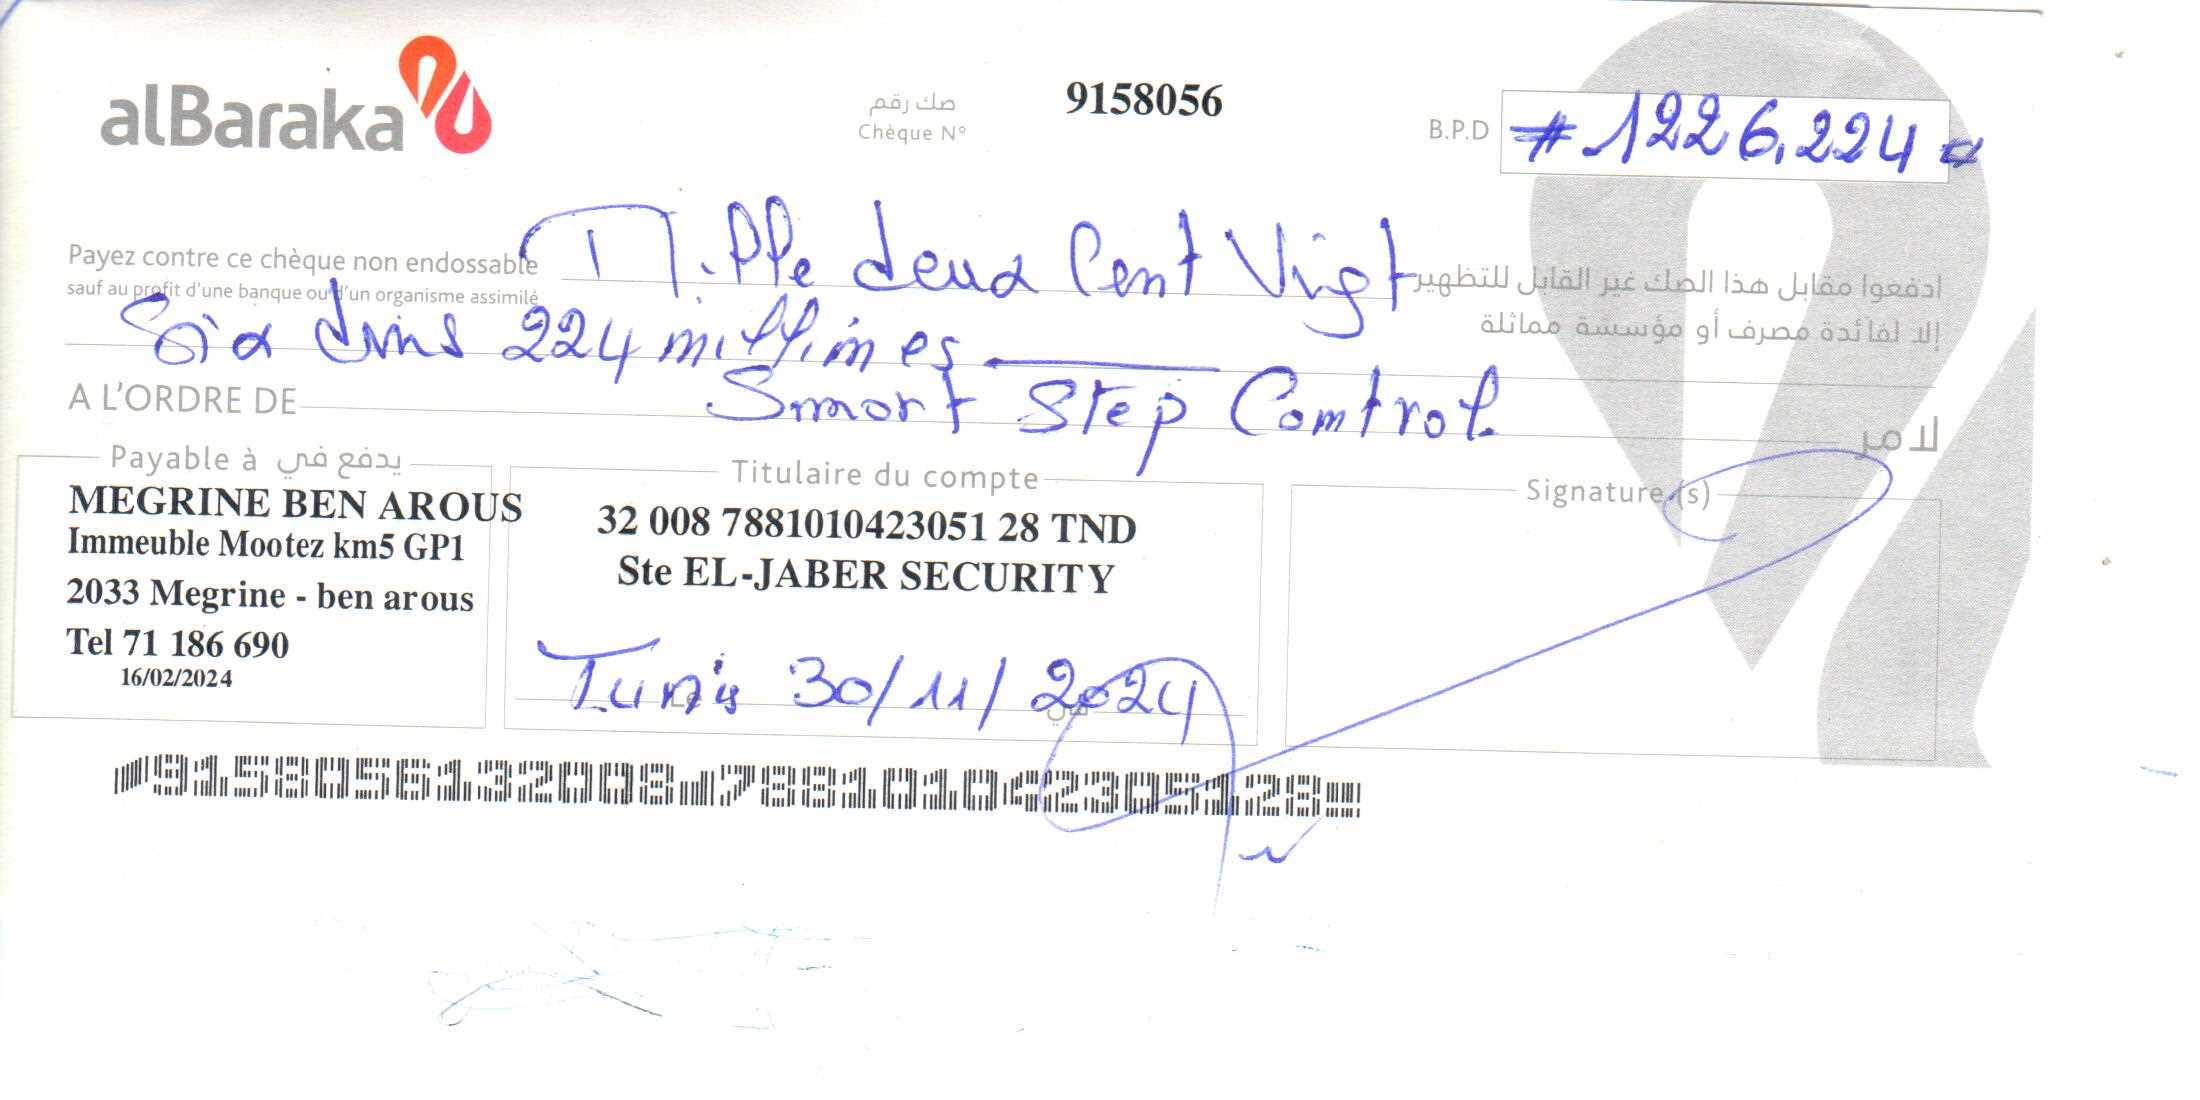 alBaraka
صك رقم
Chèque N° 9158056
B.P.D # 1226,224 #
Payez contre ce chèque non endossable
sauf au profit d'une banque ou d'un organisme assimilé
Mille deux Cent Vigt
ادفعوا مقابل هذا الصك غير القابل للتظهير
إلا لفائدة مصرف أو مؤسسة مماثلة
Six dins 224 millimes
A L'ORDRE DE Smart Step Comtrol. لامر
Payable à يدفع في
MEGRINE BEN AROUS
Immeuble Mootez km5 GP1
2033 Megrine - ben arous
Tel 71 186 690
16/02/2024
Titulaire du compte
32 008 7881010423051 28 TND
Ste EL-JABER SECURITY
Tunis 30/11/2024
Signature (s)
9158056132008 7881010423051 28